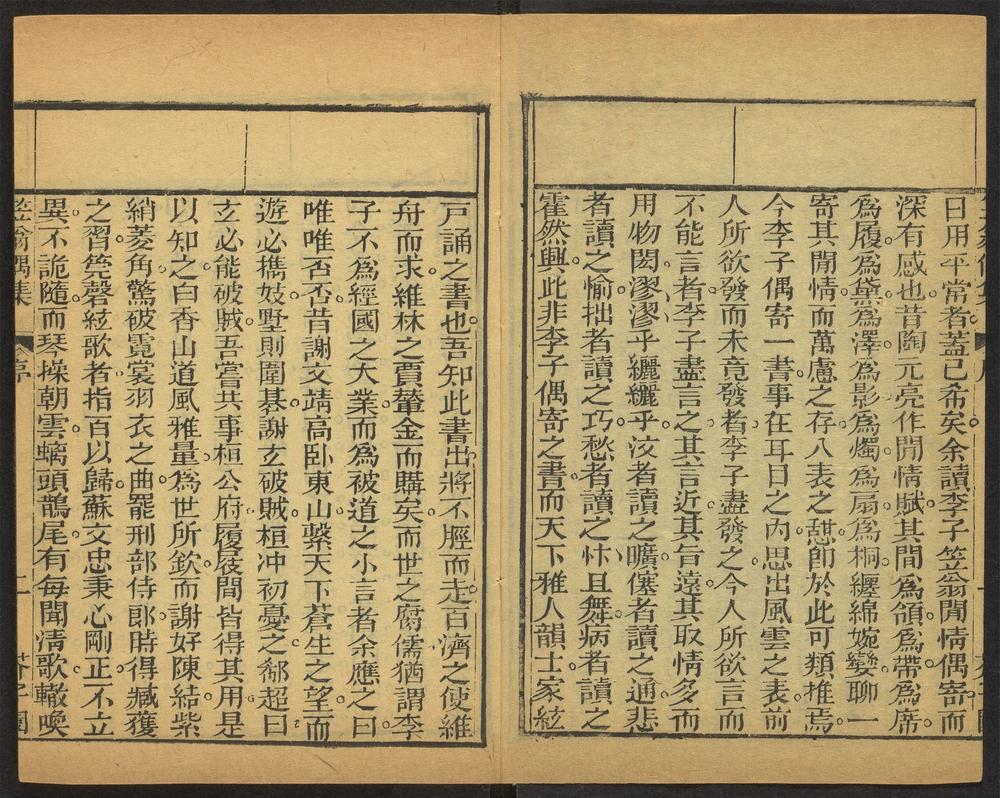 日用平常者蓋已希矣余讀李子笠翁閒情偶寄而
深有感也昔陶元亮作閒情賦其間為領為帶為席
為履為黛為澤為影為燭為扇為桐纏綿婉孌聊一
寄其閒情而萬慮之存八表之憩卽於此可類推焉
今李子偶寄一書事在耳目之內思出風雲之表前
人所欲發而未竟發者李子盡發之今人所欲言而
不能言者李子盡言之其言近其旨遠其取情多而
用物閎漻漻乎纚纚乎汶者讀之曠僿者讀之通悲
者讀之愉拙者讀之巧愁者讀之忭且舞病者讀之
霍然興此非李子偶寄之書而天下雅人韻士家絃
戸誦之書也吾知此書出將不脛而走百濟之使維
舟而求維林之賈輦金而購矣而世之腐儒猶謂李
子不為經國之大業而為破道之小言者余應之曰
唯唯否否昔謝文靖高臥東山繫天下蒼生之望而
遊必攜妓墅則圍棊謝玄破賊桓冲初憂之郗超曰
玄必能破賊吾嘗共事桓公府履屐間皆得其用是
以知之白香山道風雅量為世所欽而謝好陳結紫
綃菱角驚破霓裳羽衣之曲罷刑部侍郎時得臧獲
之習筦磬絃歌者指百以歸蘇文忠秉心剛正不立
異不詭隨而琴操朝雲螭頭鵲尾有每聞清歌輒喚
笠翁偶集 序 二